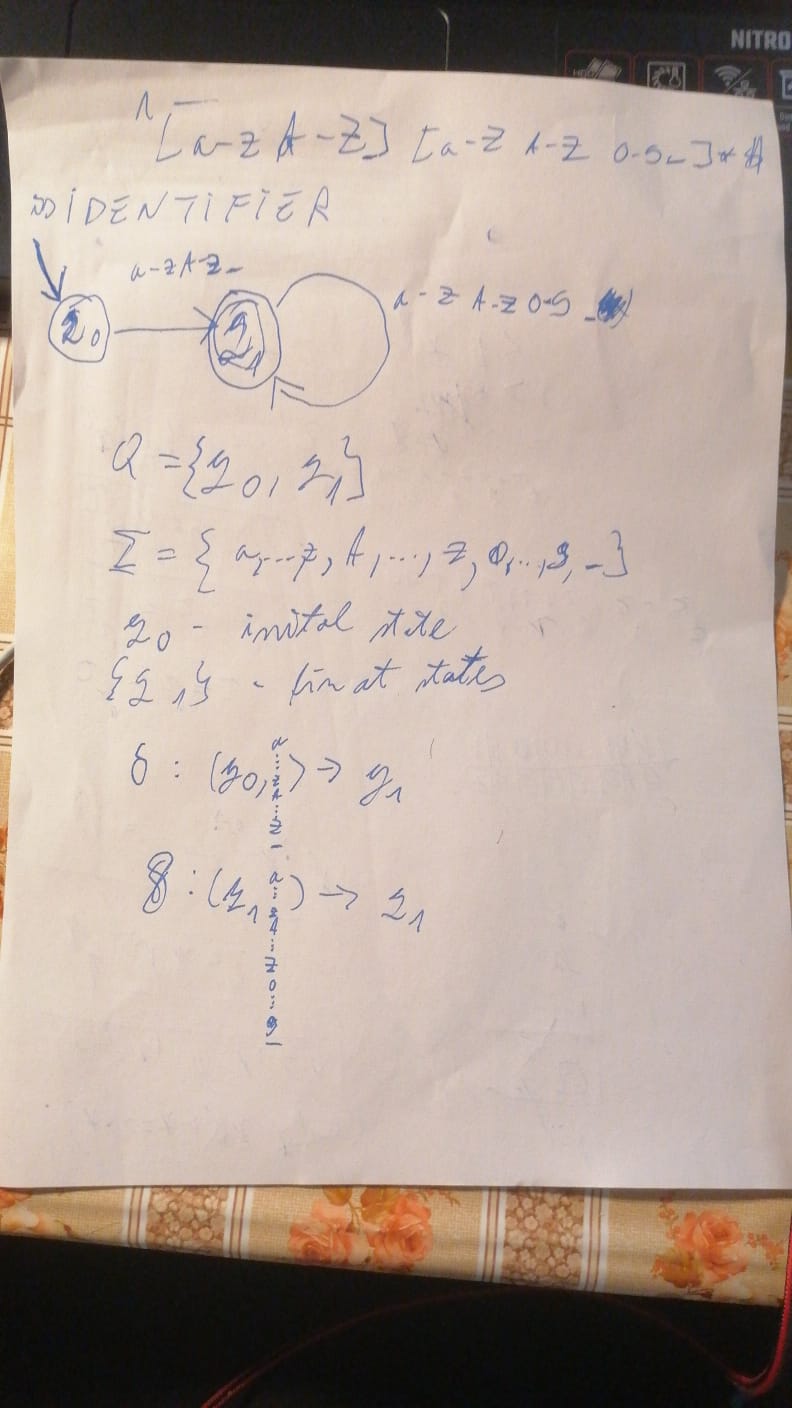 NITRO
[a-z A-Z] [a-z A-Z 0-9_]*
IDENTIFIER
a-z A-Z_
q0
q1
a-z A-Z 0-9 _
Q = {q0, q1}
Σ = { a,...z, A,..., Z, 0,..., 9, _}
q0 - inital state
{q1} - finat states
δ : (q0, a...z A...Z _) → q1
δ : (q1 a...z A...Z 0...9 _) → q1